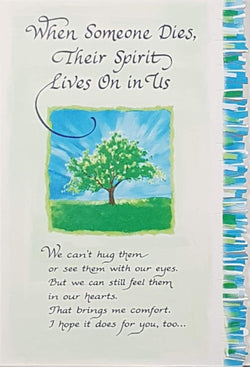 When Someone Dies,
Their Spirit
Lives On in Us
We can't hug them
or see them with our eyes.
But we can still feel them
in our hearts.
That brings me comfort.
I hope it does for you, too...